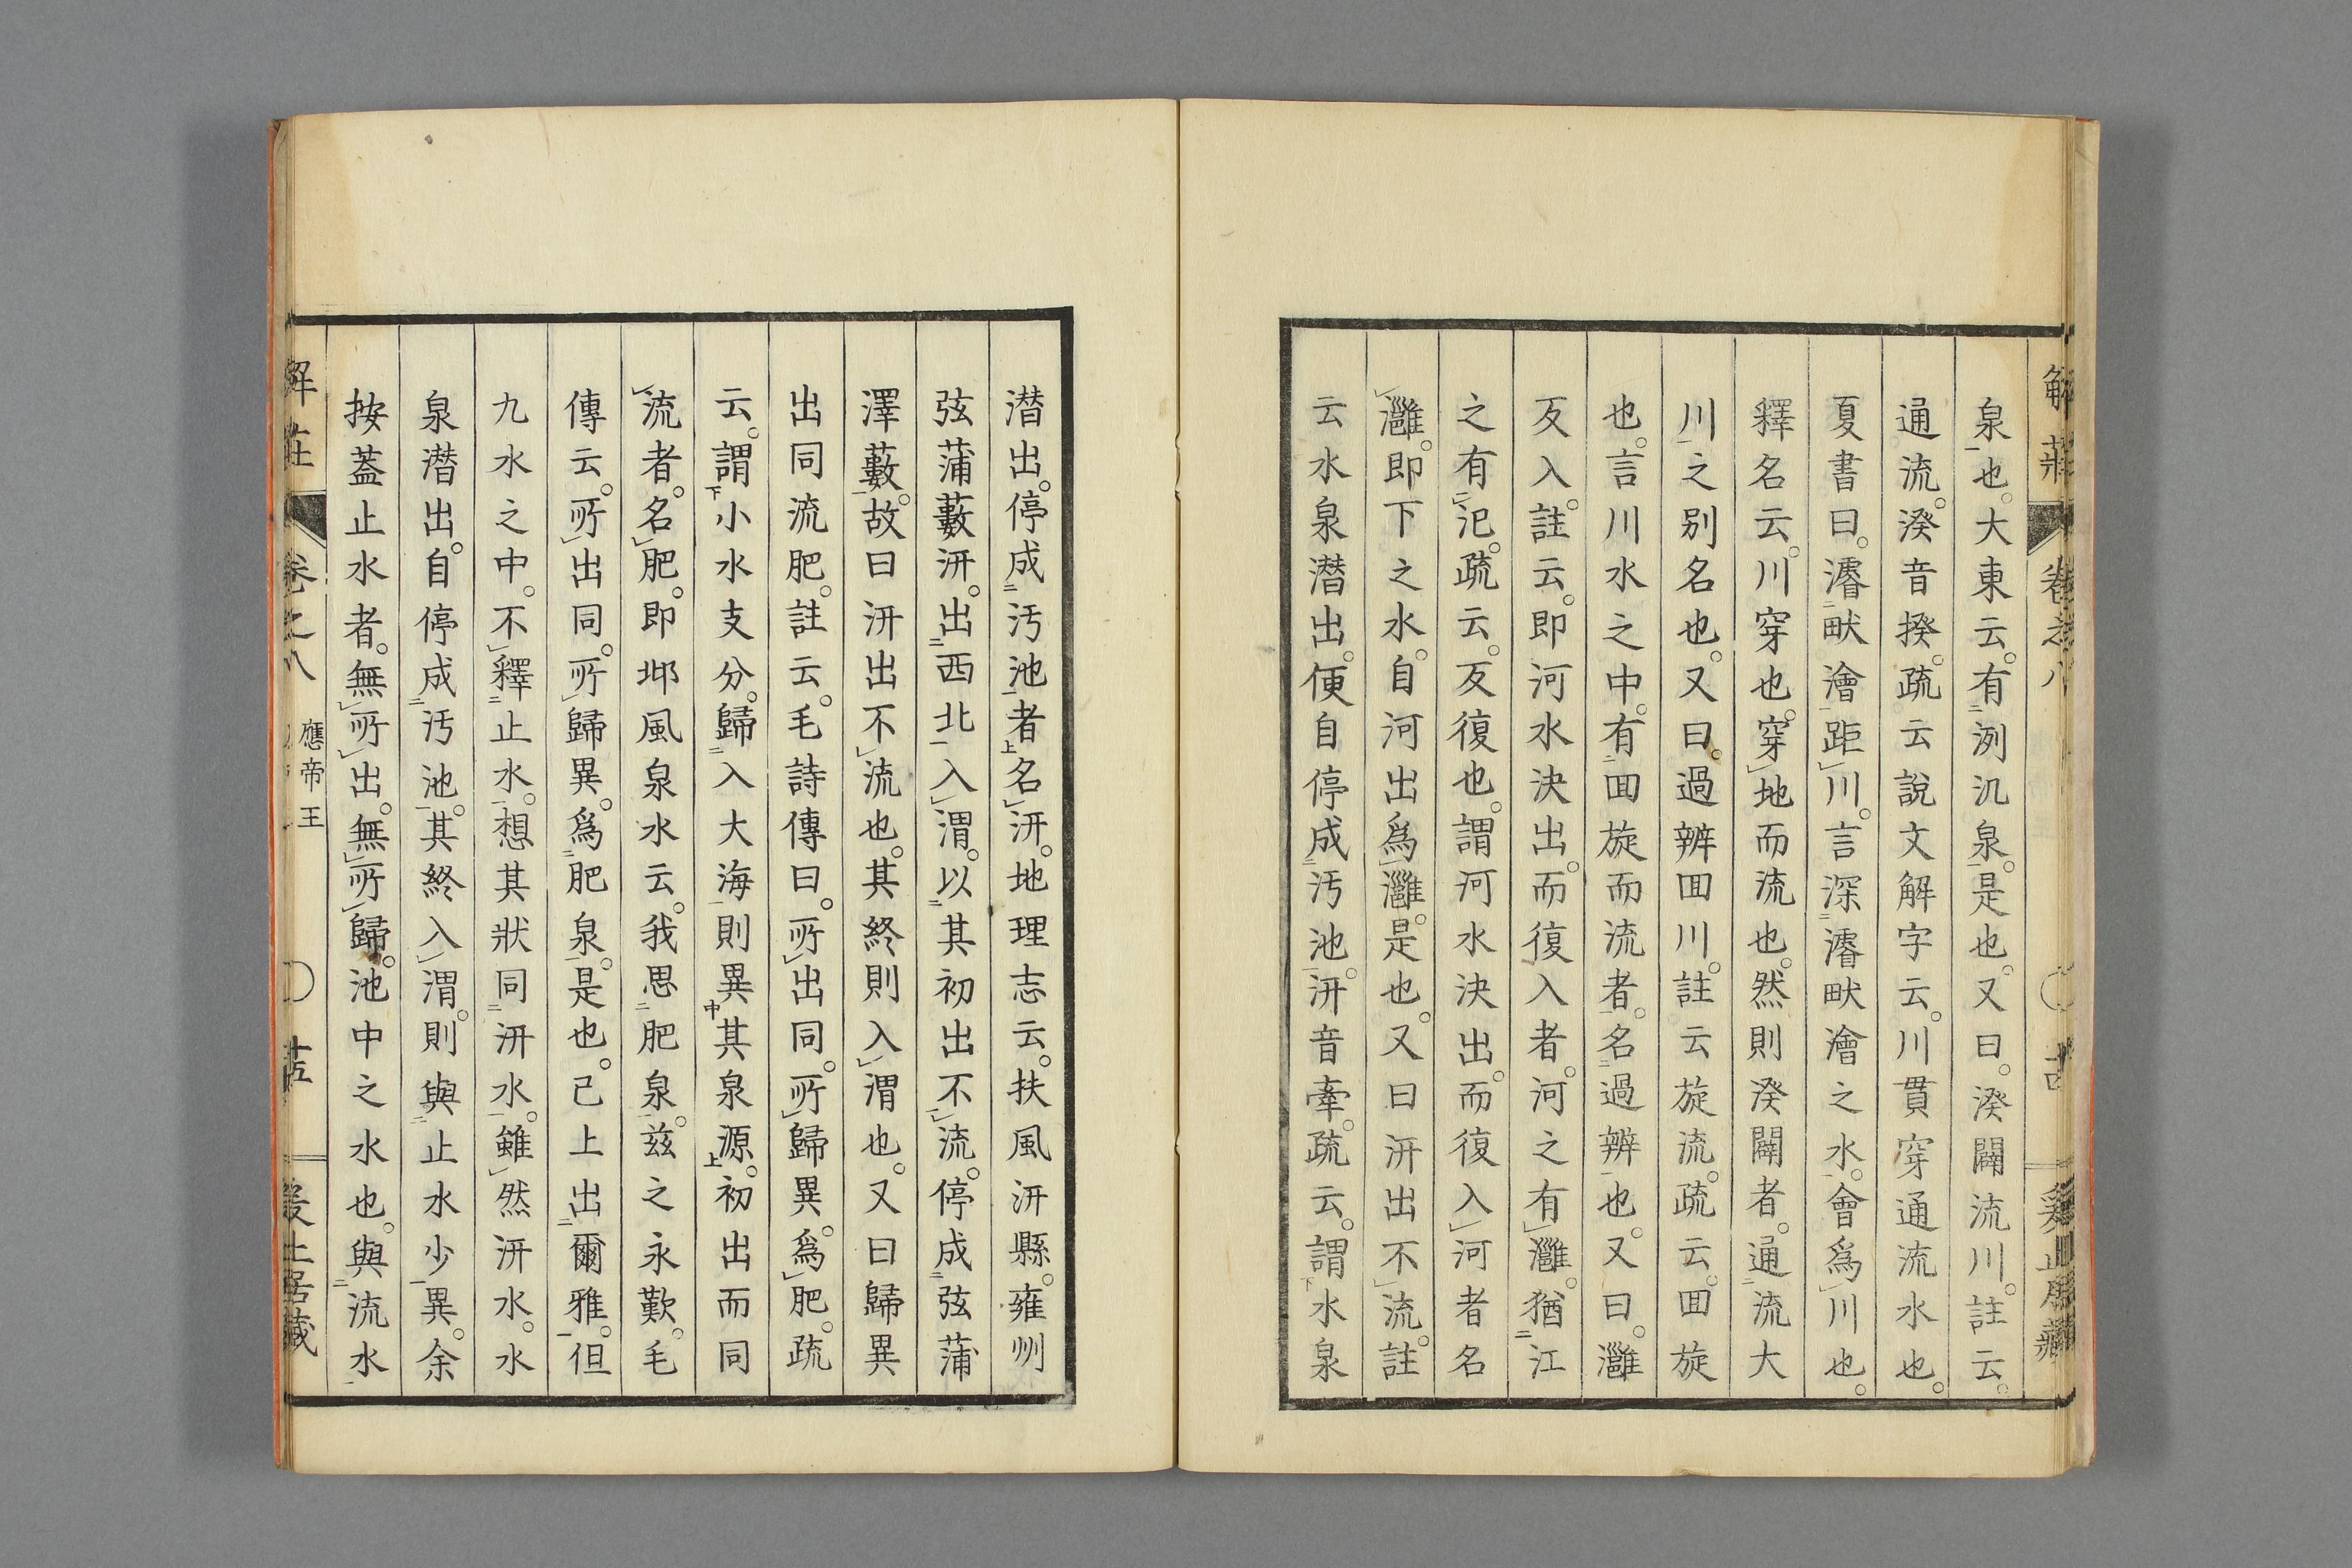 泉也。大東云。有洌氿泉。是也。又曰。湀闢流川。註云。
通流。湀音揆。疏云說文解字云。川貫穿通流水也。
夏書曰。濬畎澮距川。言深濬畎澮之水。會爲川也。
釋名云。川穿也。穿地而流也。然則湀闢者。通流大
川之別名也。又曰。過辨回川。註云旋流。疏云。回旋
也。言川水之中。有回旋而流者。名過辨也。又曰。灉
反入。註云。即河水決出。而復入者。河之有灉。猶江
之有汜。疏云。反復也。謂河水決出。而復入河者名
灉。即下之水。自河出爲灉。是也。又曰汧出不流。註
云水泉潛出。便自停成汚池。汧音牽。疏云。謂水泉
潛出。停成汚池者名汧。地理志云。扶風汧縣。雍州
弦蒲藪汧。出西北入渭。以其初出不流。停成弦蒲
澤藪。故曰汧出不流也。其終則入渭也。又曰歸異
出同流肥。註云。毛詩傳曰。所出同。所歸異。爲肥。疏
云。謂小水支分。歸入大海則異其泉源。初出而同
流者。名肥。即邶風泉水云。我思肥泉。茲之永歎。毛
傳云。所出同。所歸異。爲肥泉。是也。已上出爾雅。但
九水之中。不釋止水。想其狀同汧水。雖然汧水。水
泉潛出。自停成汚池。其終入渭。則與止水少異。余
按蓋止水者。無所出。無所歸。池中之水也。與流水
解莊
卷之八
應帝王